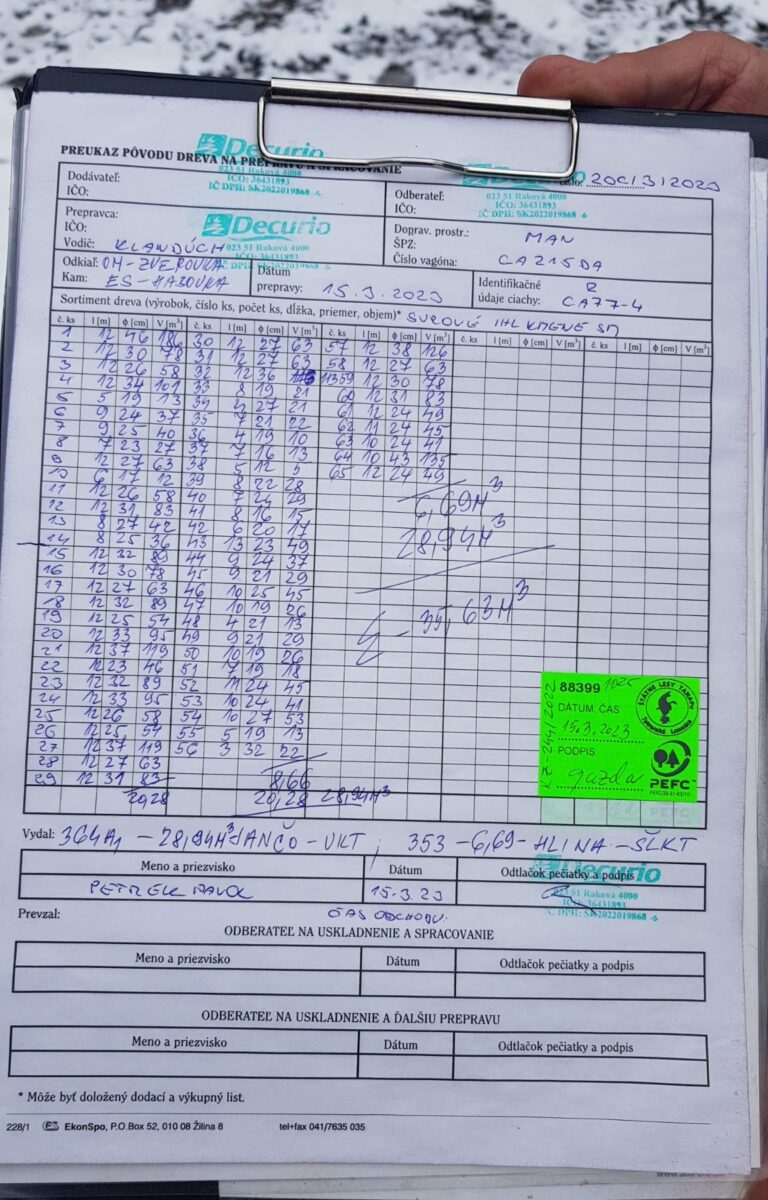 PREUKAZ PÔVODU DREVA NA PREPRAVU A SPRACOVANIE
Decurio
023 51 Raková 4000
IČO: 36431893
IČ DPH: SK2022019868 -6
Číslo: 20C/3/2023
Dodávateľ:
IČO:
Odberateľ:
IČO:
023 51 Raková 4000
IČO: 36431893
IČ DPH: SK2022019868 -6
Prepravca:
Decurio
023 51 Raková 4000
IČO: 36431893
IČ DPH: SK2022019868 -6
Vodič: KLANDÚCH
Doprav. prostr.: MAN
ŠPZ:
Číslo vagóna: CA215DA
Odkiaľ: OM-ZVEROVKA
Kam: ES-HABOVKA
Dátum prepravy: 15.3.2023
Identifikačné údaje ciachy: CA77-4
Sortiment dreva (výrobok, číslo ks, počet ks, dĺžka, priemer, objem)* SUROVÉ IHL KMENE SM
č. ks l [m] ϕ [cm] V [m³] č. ks l [m] ϕ [cm] V [m³] č. ks l [m] ϕ [cm] V [m³] č. ks l [m] ϕ [cm] V [m³] č. ks l [m] ϕ [cm] V [m³]
1 12 46 186 30 12 27 63 57 12 38 126
2 12 30 78 31 12 27 63 58 12 27 63
3 12 26 58 32 12 36 113 59 12 30 78
4 12 34 101 33 8 19 21 60 12 31 83
5 5 19 13 34 4 27 21 61 12 24 49
6 9 24 37 35 7 21 22 62 11 24 45
7 9 25 40 36 4 19 10 63 10 24 41
8 7 23 27 37 7 16 13 64 10 43 135
9 12 27 63 38 5 12 5 65 12 24 49
10 6 17 12 39 8 22 28
11 12 26 58 40 7 24 29
12 12 31 83 41 8 16 15
13 8 27 42 42 6 20 17
14 8 25 36 43 13 23 49
15 12 32 89 44 9 24 37
16 12 30 78 45 9 21 29
17 12 27 63 46 10 25 45
18 12 32 89 47 10 19 26
19 12 25 54 48 4 21 13
20 12 33 95 49 9 21 29
21 12 37 119 50 10 19 26
22 12 23 46 51 7 19 18
23 12 32 89 52 11 24 45
24 12 33 95 53 10 24 41
25 12 26 58 54 10 27 53
26 12 25 54 55 5 19 13
27 12 37 119 56 3 32 22
28 12 27 63
29 12 31 83 8,66
20,28 20,28 28,94M³
6,69M³
28,94M³
35,63M³
88399
DÁTUM, ČAS
15.3.2023
PODPIS
gazda
ŠTÁTNE LESY TANAPU
Tatranská Lomnica
PEFC
Vydal: 364A1 - 28,94M³ JANČO - VKT ; 353 - 6,69 - HLINA - ŠLKT
Meno a priezvisko Dátum Odtlačok pečiatky a podpis
PETREK PAVOL 15.3.23
Decurio
023 51 Raková 4000
IČO: 36431893
IČ DPH: SK2022019868 -6
Prevzal: ČAS ODCHODU.
ODBERATEĽ NA USKLADNENIE A SPRACOVANIE
Meno a priezvisko Dátum Odtlačok pečiatky a podpis
ODBERATEĽ NA USKLADNENIE A ĎALŠIU PREPRAVU
Meno a priezvisko Dátum Odtlačok pečiatky a podpis
* Môže byť doložený dodací a výkupný list.
228/1 EkonSpo, P.O.Box 52, 010 08 Žilina 8 tel+fax 041/7635 035